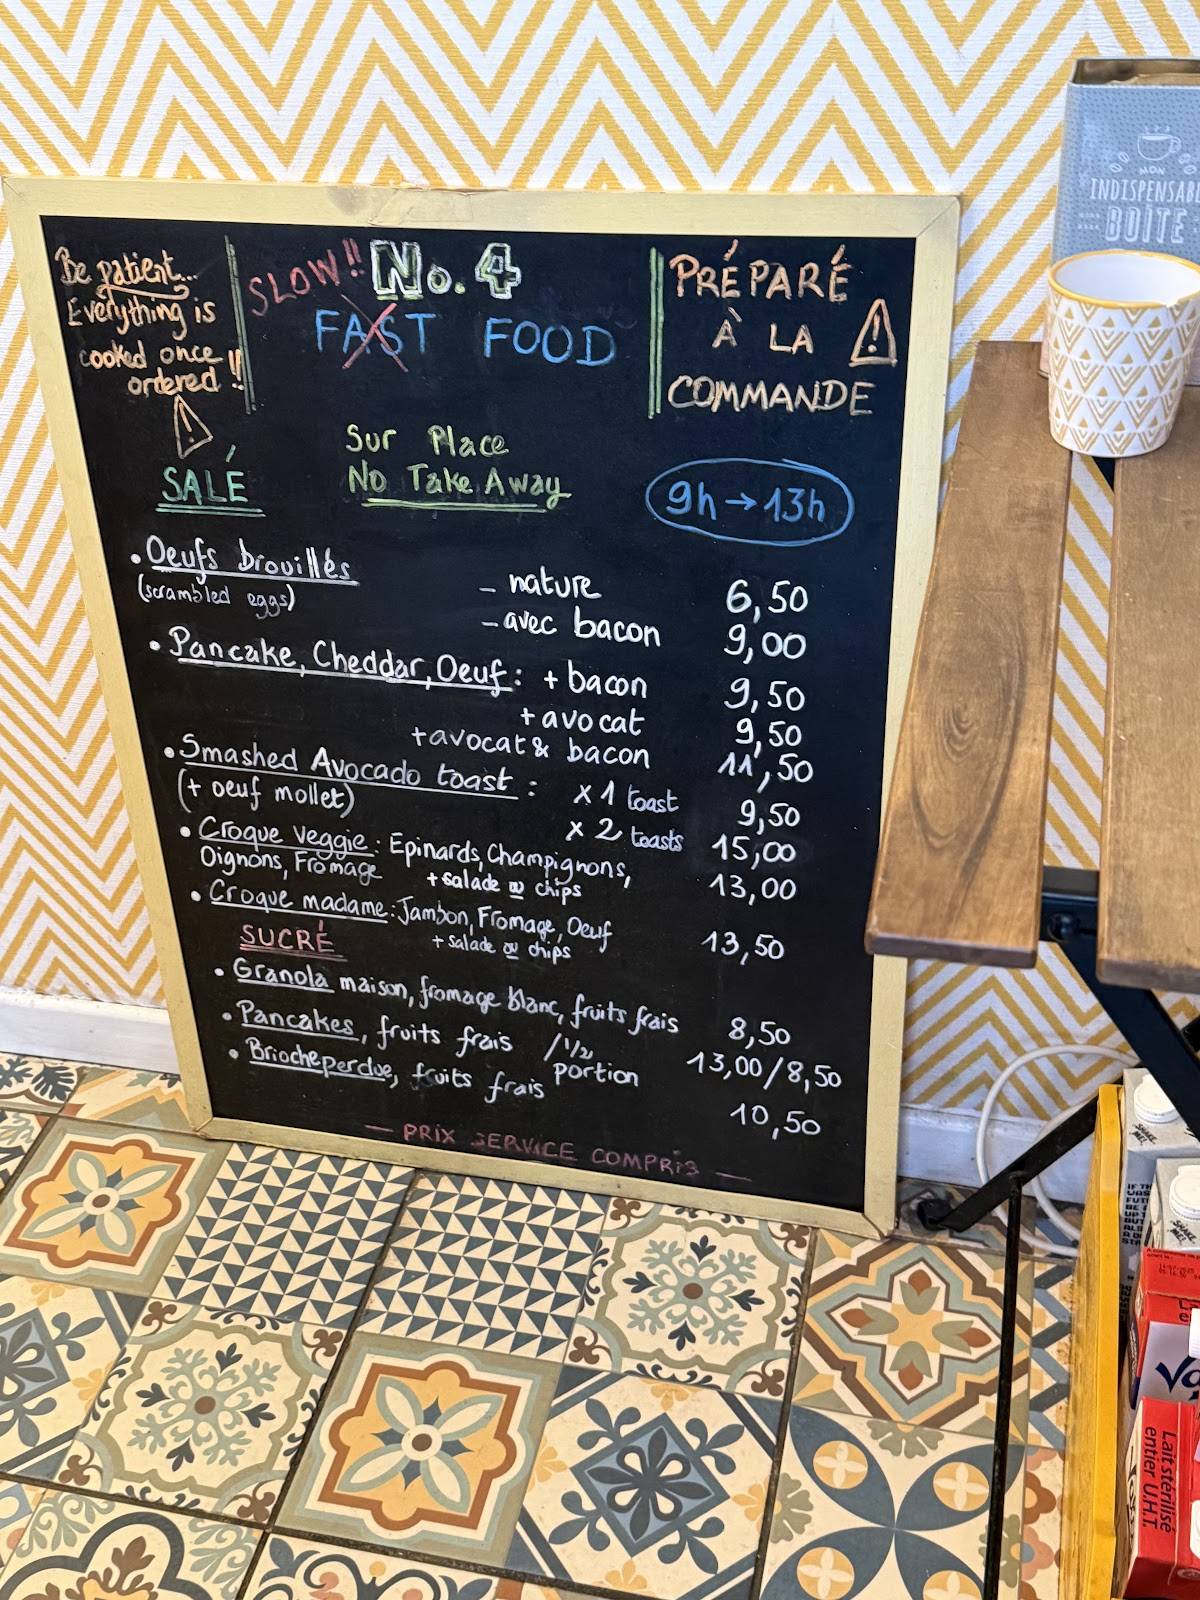 Be patient...
Everything is
cooked once
ordered!!
SLOW!! No. 4
FAST FOOD
PRÉPARÉ
À LA
COMMANDE
Sur Place
No Take Away
9h → 13h
SALÉ
• Oeufs brouillés - nature 6,50
(scrambled eggs) - avec bacon 9,00
• Pancake, Cheddar, Oeuf : + bacon 9,50
+ avocat 9,50
+ avocat & bacon 11,50
• Smashed Avocado toast : x 1 toast 9,50
(+ oeuf mollet) x 2 toasts 15,00
• Croque veggie : Epinards, Champignons,
Oignons, Fromage + salade ou chips 13,00
• Croque madame : Jambon, Fromage, Oeuf
+ salade ou chips 13,50
SUCRÉ
• Granola maison, fromage blanc, fruits frais 8,50
• Pancakes, fruits frais / 1/2 portion 13,00 / 8,50
• Brioche perdue, fruits frais 10,50
— PRIX SERVICE COMPRIS —
MON
INDISPENSAB
BOÎTE
SHAKE
ME!
SHAKE
ME!
Lait stérilisé
entier U.H.T.